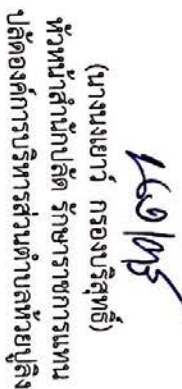 (นางนงเยาว์ กรองบริสุทธิ์)
หัวหน้าสำนักปลัด รักษาราชการแทน
ปลัดองค์การบริหารส่วนตำบลห้วยปูลิง